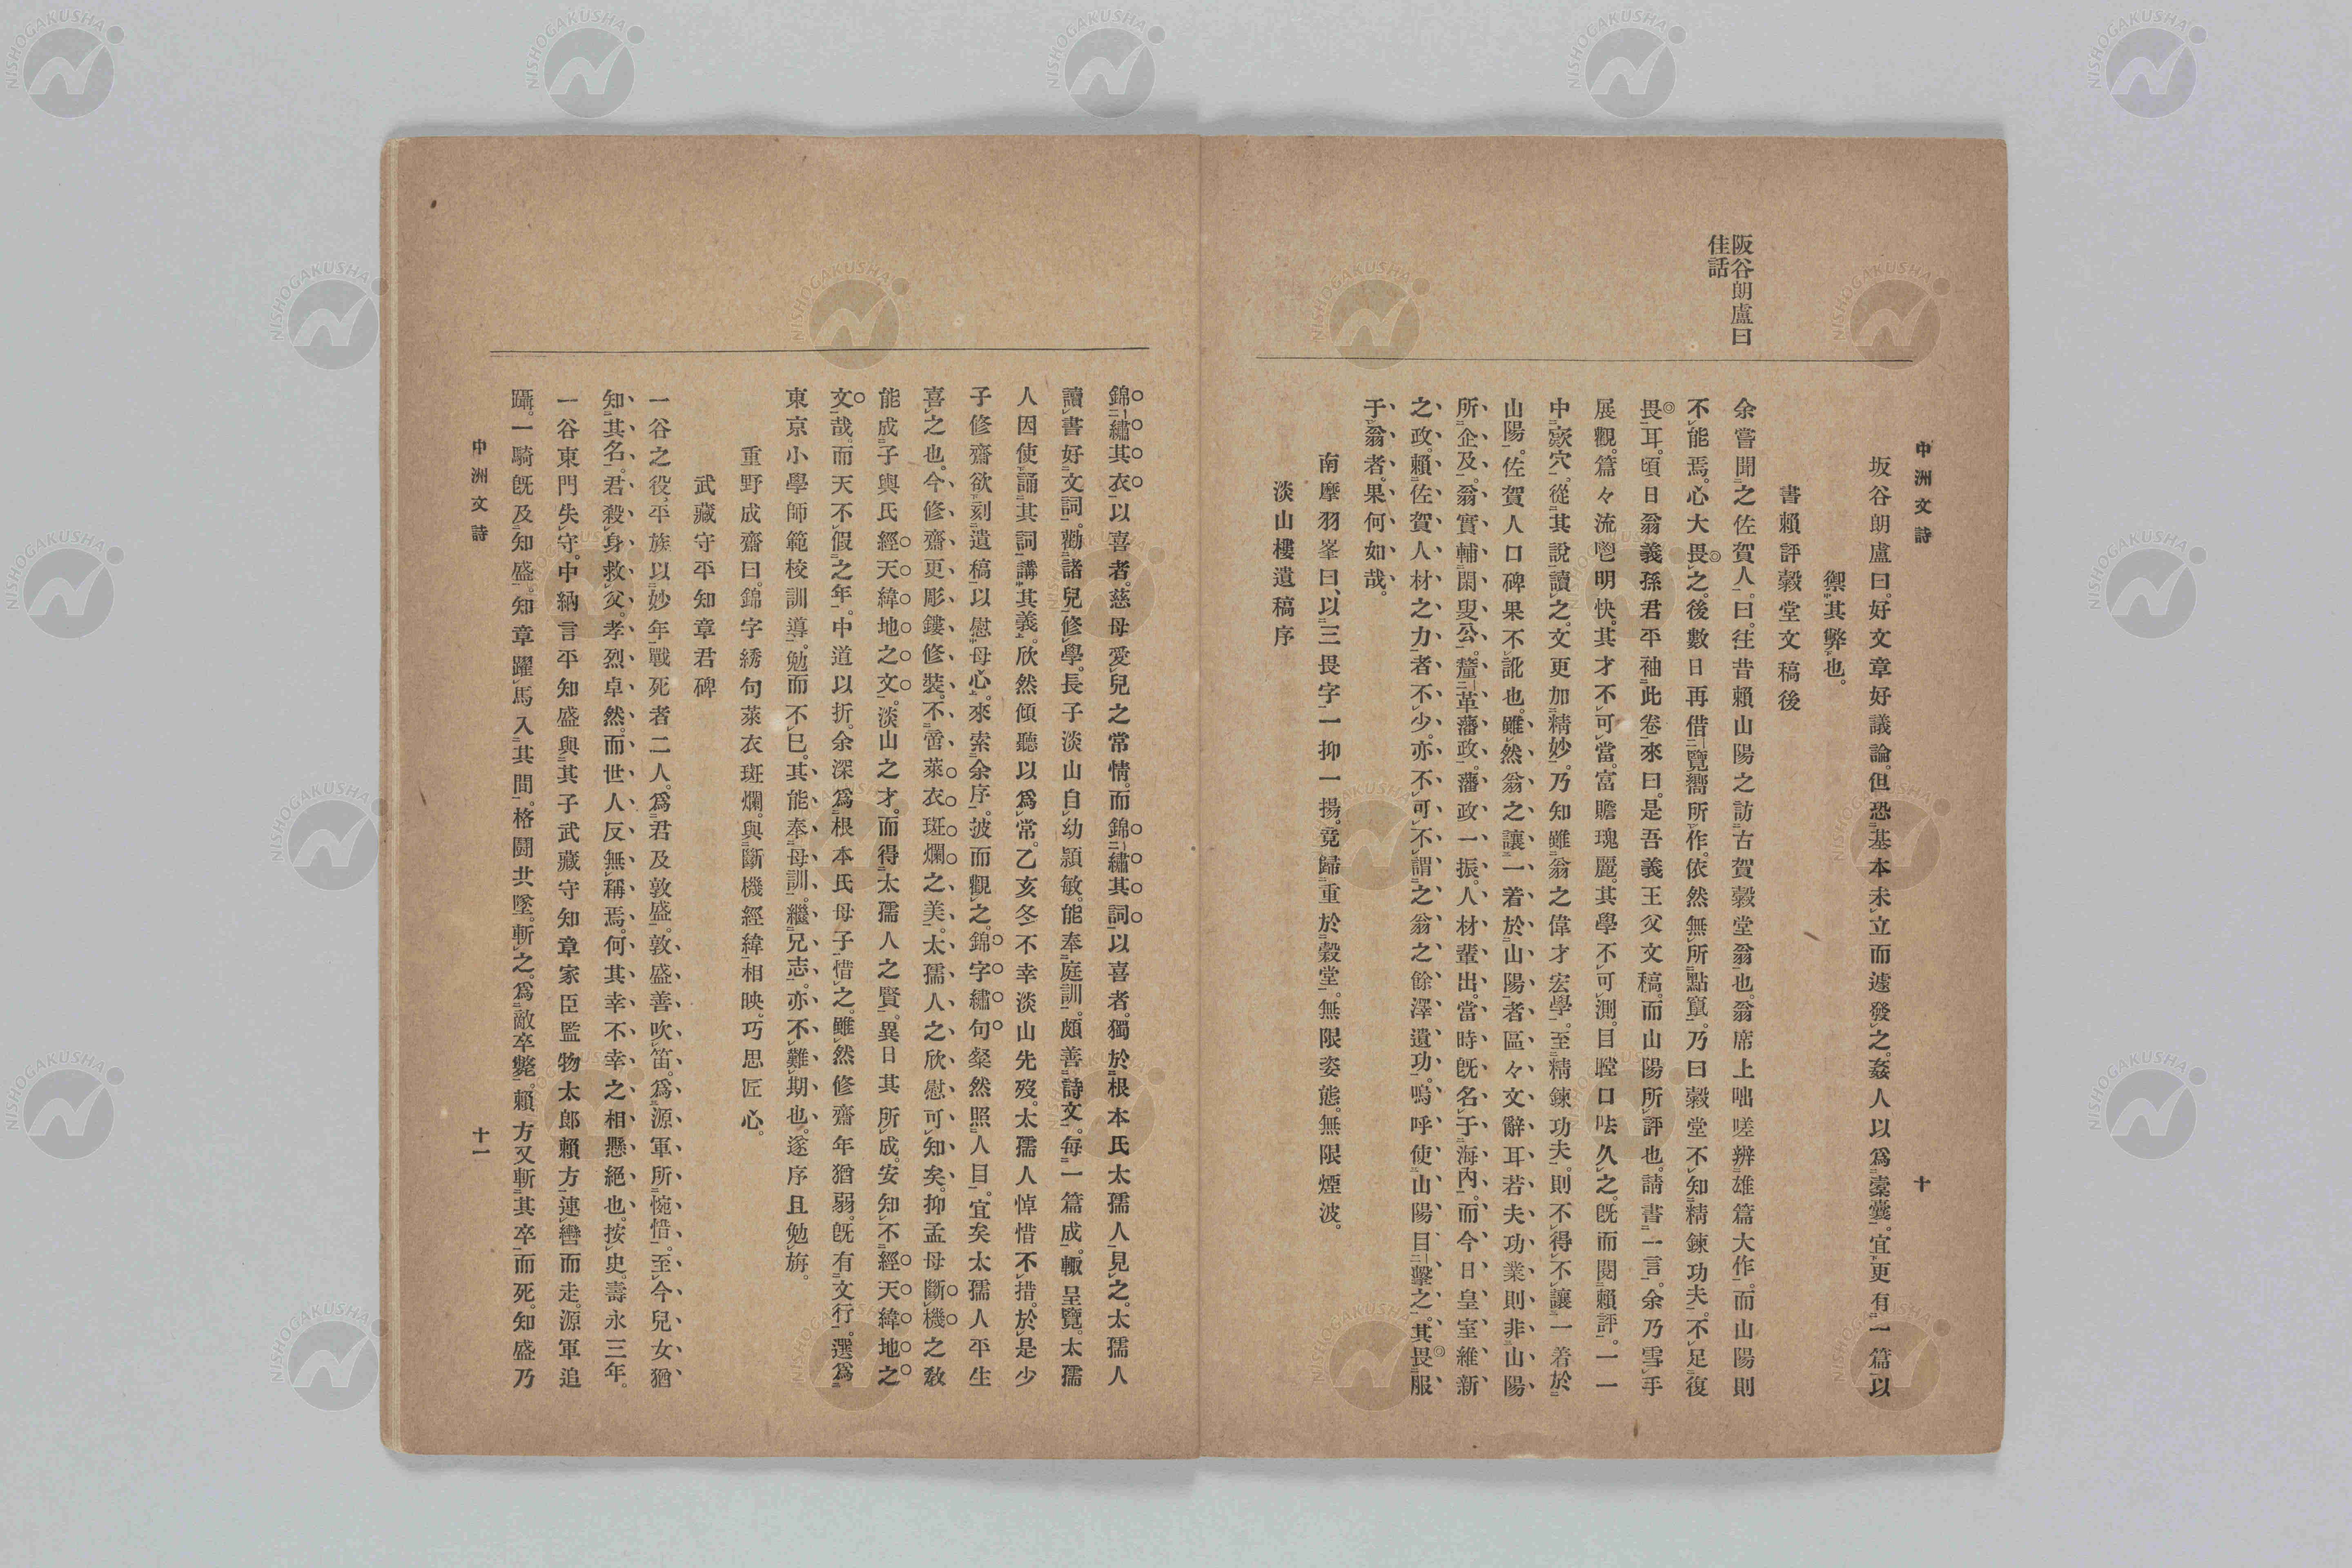 中洲文詩
十
坂谷朗盧曰。好文章好議論。但恐基本未立而遽發之。姦人以爲槖囊。宜更有一篇以
禦其弊也。
書賴評穀堂文稿後
余嘗聞之佐賀人。曰。往昔賴山陽之訪古賀穀堂翁也。翁席上咄嗟辨雄篇大作。而山陽則
不能焉。心大畏之。後數日再借覽嚮所作。依然無所點竄。乃曰穀堂不知精鍊功夫。不足復
畏耳。頃日翁義孫君平袖此卷來曰。是吾義王父文稿。而山陽所評也。請書一言。余乃雪手
展觀。篇々流麗明快。其才不可當。富贍瑰麗。其學不可測。目瞠口呿久之。旣而閱賴評。一一
中窽穴。從其說讀之。文更加精妙。乃知雖翁之偉才宏學。至精鍊功夫。則不得不讓一着於
山陽。佐賀人口碑果不訛也。雖然翁之讓一着於山陽者區々文辭耳若夫功業則非山陽
所企及。翁實輔閑叟公。釐革藩政。藩政一振。人材輩出。當時旣名于海內。而今日皇室維新
之政。賴佐賀人材之力者不少。亦不可不謂之翁之餘澤遺功。嗚呼使山陽目擊之。其畏服
于翁者。果何如哉。
南摩羽峯曰、以三畏字一抑一揚。竟歸重於穀堂。無限姿態。無限煙波。
淡山樓遺稿序
阪谷朗盧曰
佳話
錦繡其衣以喜者。慈母愛兒之常情。而錦繡其詞以喜者。獨於根本氏太孺人見之。太孺人
讀書好文詞。勸諸兒修學。長子淡山自幼穎敏。能奉庭訓。頗善詩文。每一篇成。輙呈覽。太孺
人因使誦其詞講其義。欣然傾聽以爲常。乙亥冬不幸淡山先歿。太孺人悼惜不措。於是少
子修齋欲刻遺稿以慰母心。來索余序。披而觀之。錦字繡句。粲然照人目。宜矣太孺人平生
喜之也。今修齋更彫鏤修裝。不啻萊衣斑爛之美。太孺人之欣慰可知矣。抑孟母斷機之敎
能成子與氏經天緯地之文。淡山之才。而得太孺人之賢。異日其所成。安知不經天緯地之
文哉。而天不假之年。中道以折。余深爲根本氏母子惜之。雖然修齋年猶弱。旣有文行。選爲
東京小學師範校訓導。勉而不已。其能奉母訓。繼兄志。亦不難期也。遂序且勉旃。
重野成齋曰。錦字綉句萊衣斑爛。與斷機經緯相映。巧思匠心。
武藏守平知章君碑
一谷之役。平族以妙年戰死者二人。爲君及敦盛。敦盛善吹笛。爲源軍所惋惜。至今兒女猶
知其名。君殺身救父。孝烈卓然。而世人反無稱焉。何其幸不幸之相懸絕也。按史。壽永三年。
一谷東門失守。中納言平知盛與其子武藏守知章家臣監物太郎賴方連轡而走。源軍追
躡。一騎旣及知盛。知章躍馬入其間。格鬪共墜。斬之。爲敵卒斃。賴方又斬其卒而死。知盛乃
中洲文詩
十一